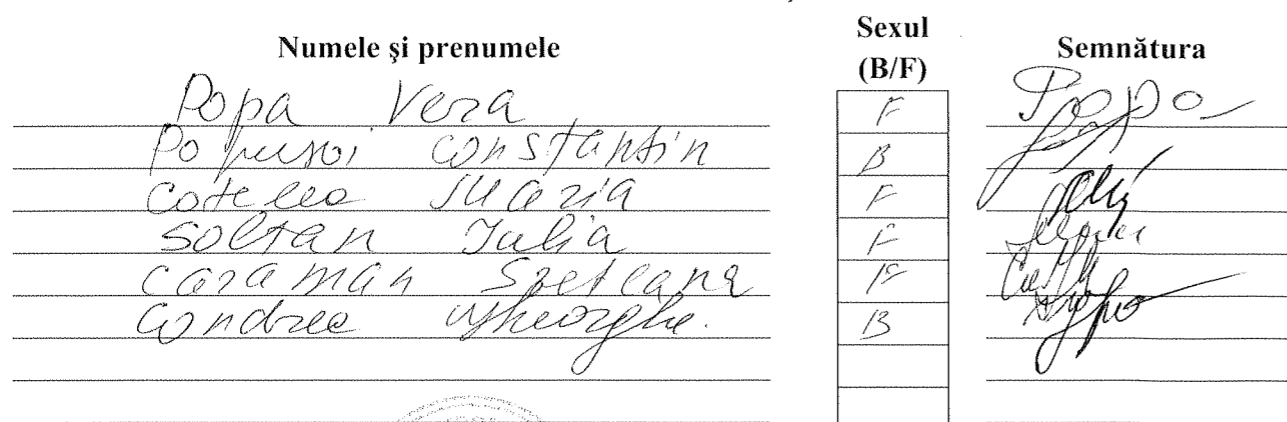 Numele și prenumele Sexul (B/F) Semnătura
Popa Vera F Popa
Popușoi Constantin B
Cotelea Maria F
Soltan Iulia F
Caraman Svetlana F
Condrea Gheorghe. B